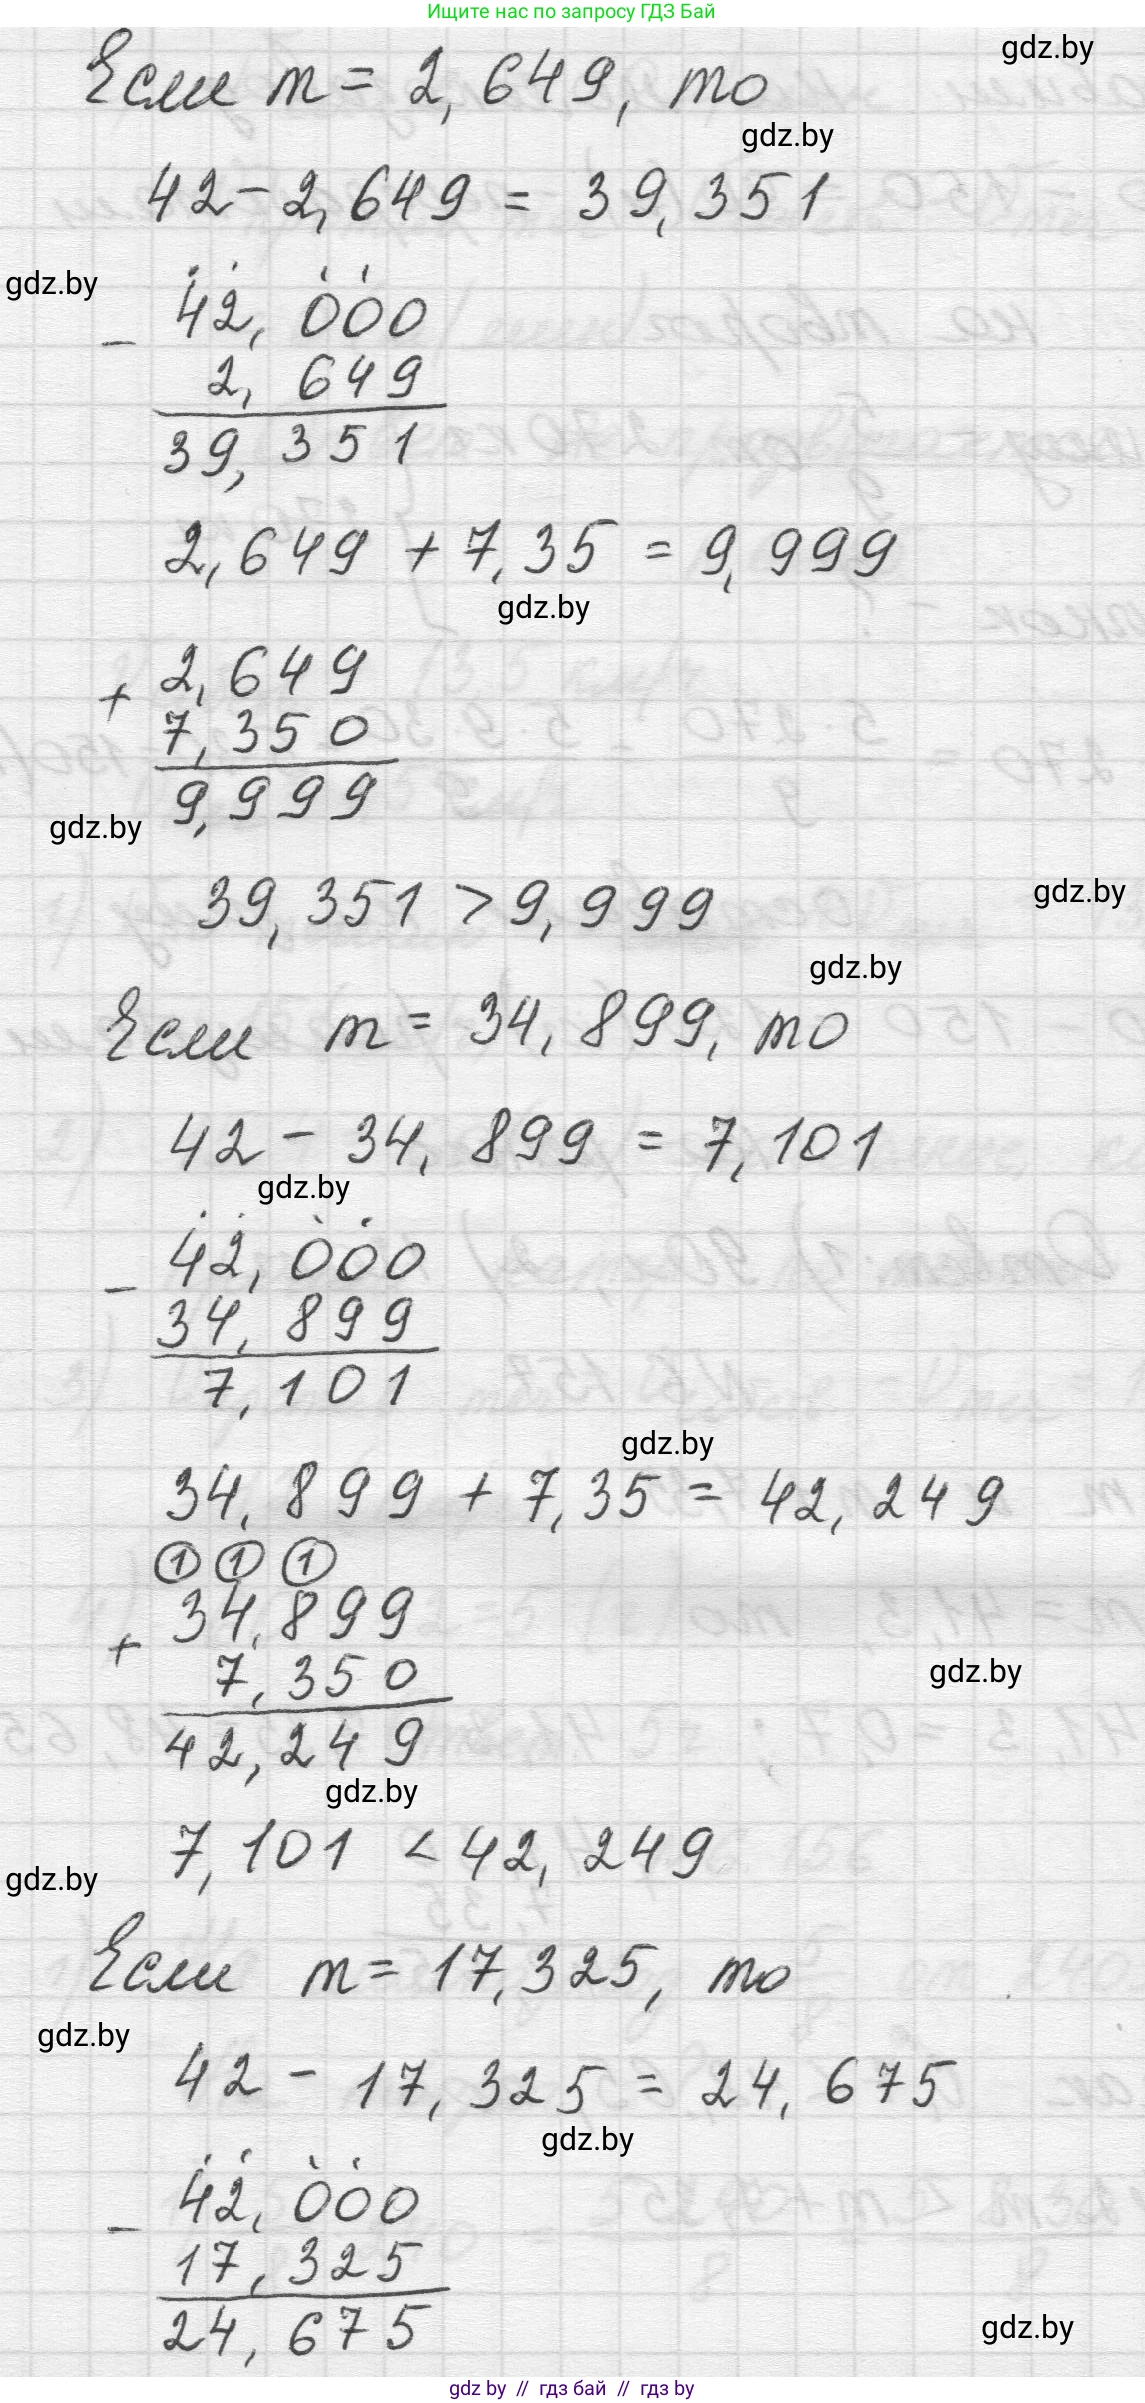 Ищите нас по запросу ГДЗ Бай
gdz.by
Если m = 2,649, то
gdz.by
42 - 2,649 = 39,351
gdz.by
42,000
-
2,649
39,351
2,649 + 7,35 = 9,999
gdz.by
2,649
+
7,350
9,999
gdz.by
39,351 > 9,999
gdz.by
gdz.by
Если m = 34,899, то
42 - 34,899 = 7,101
gdz.by
42,000
-
34,899
7,101
gdz.by
34,899 + 7,35 = 42,249
1 1 1
34,899
+
7,350
gdz.by
42,249
gdz.by
7,101 < 42,249
gdz.by
Если m = 17,325, то
gdz.by
42 - 17,325 = 24,675
gdz.by
42,000
-
17,325
24,675
gdz.by
gdz by // гдз бай // gdz by